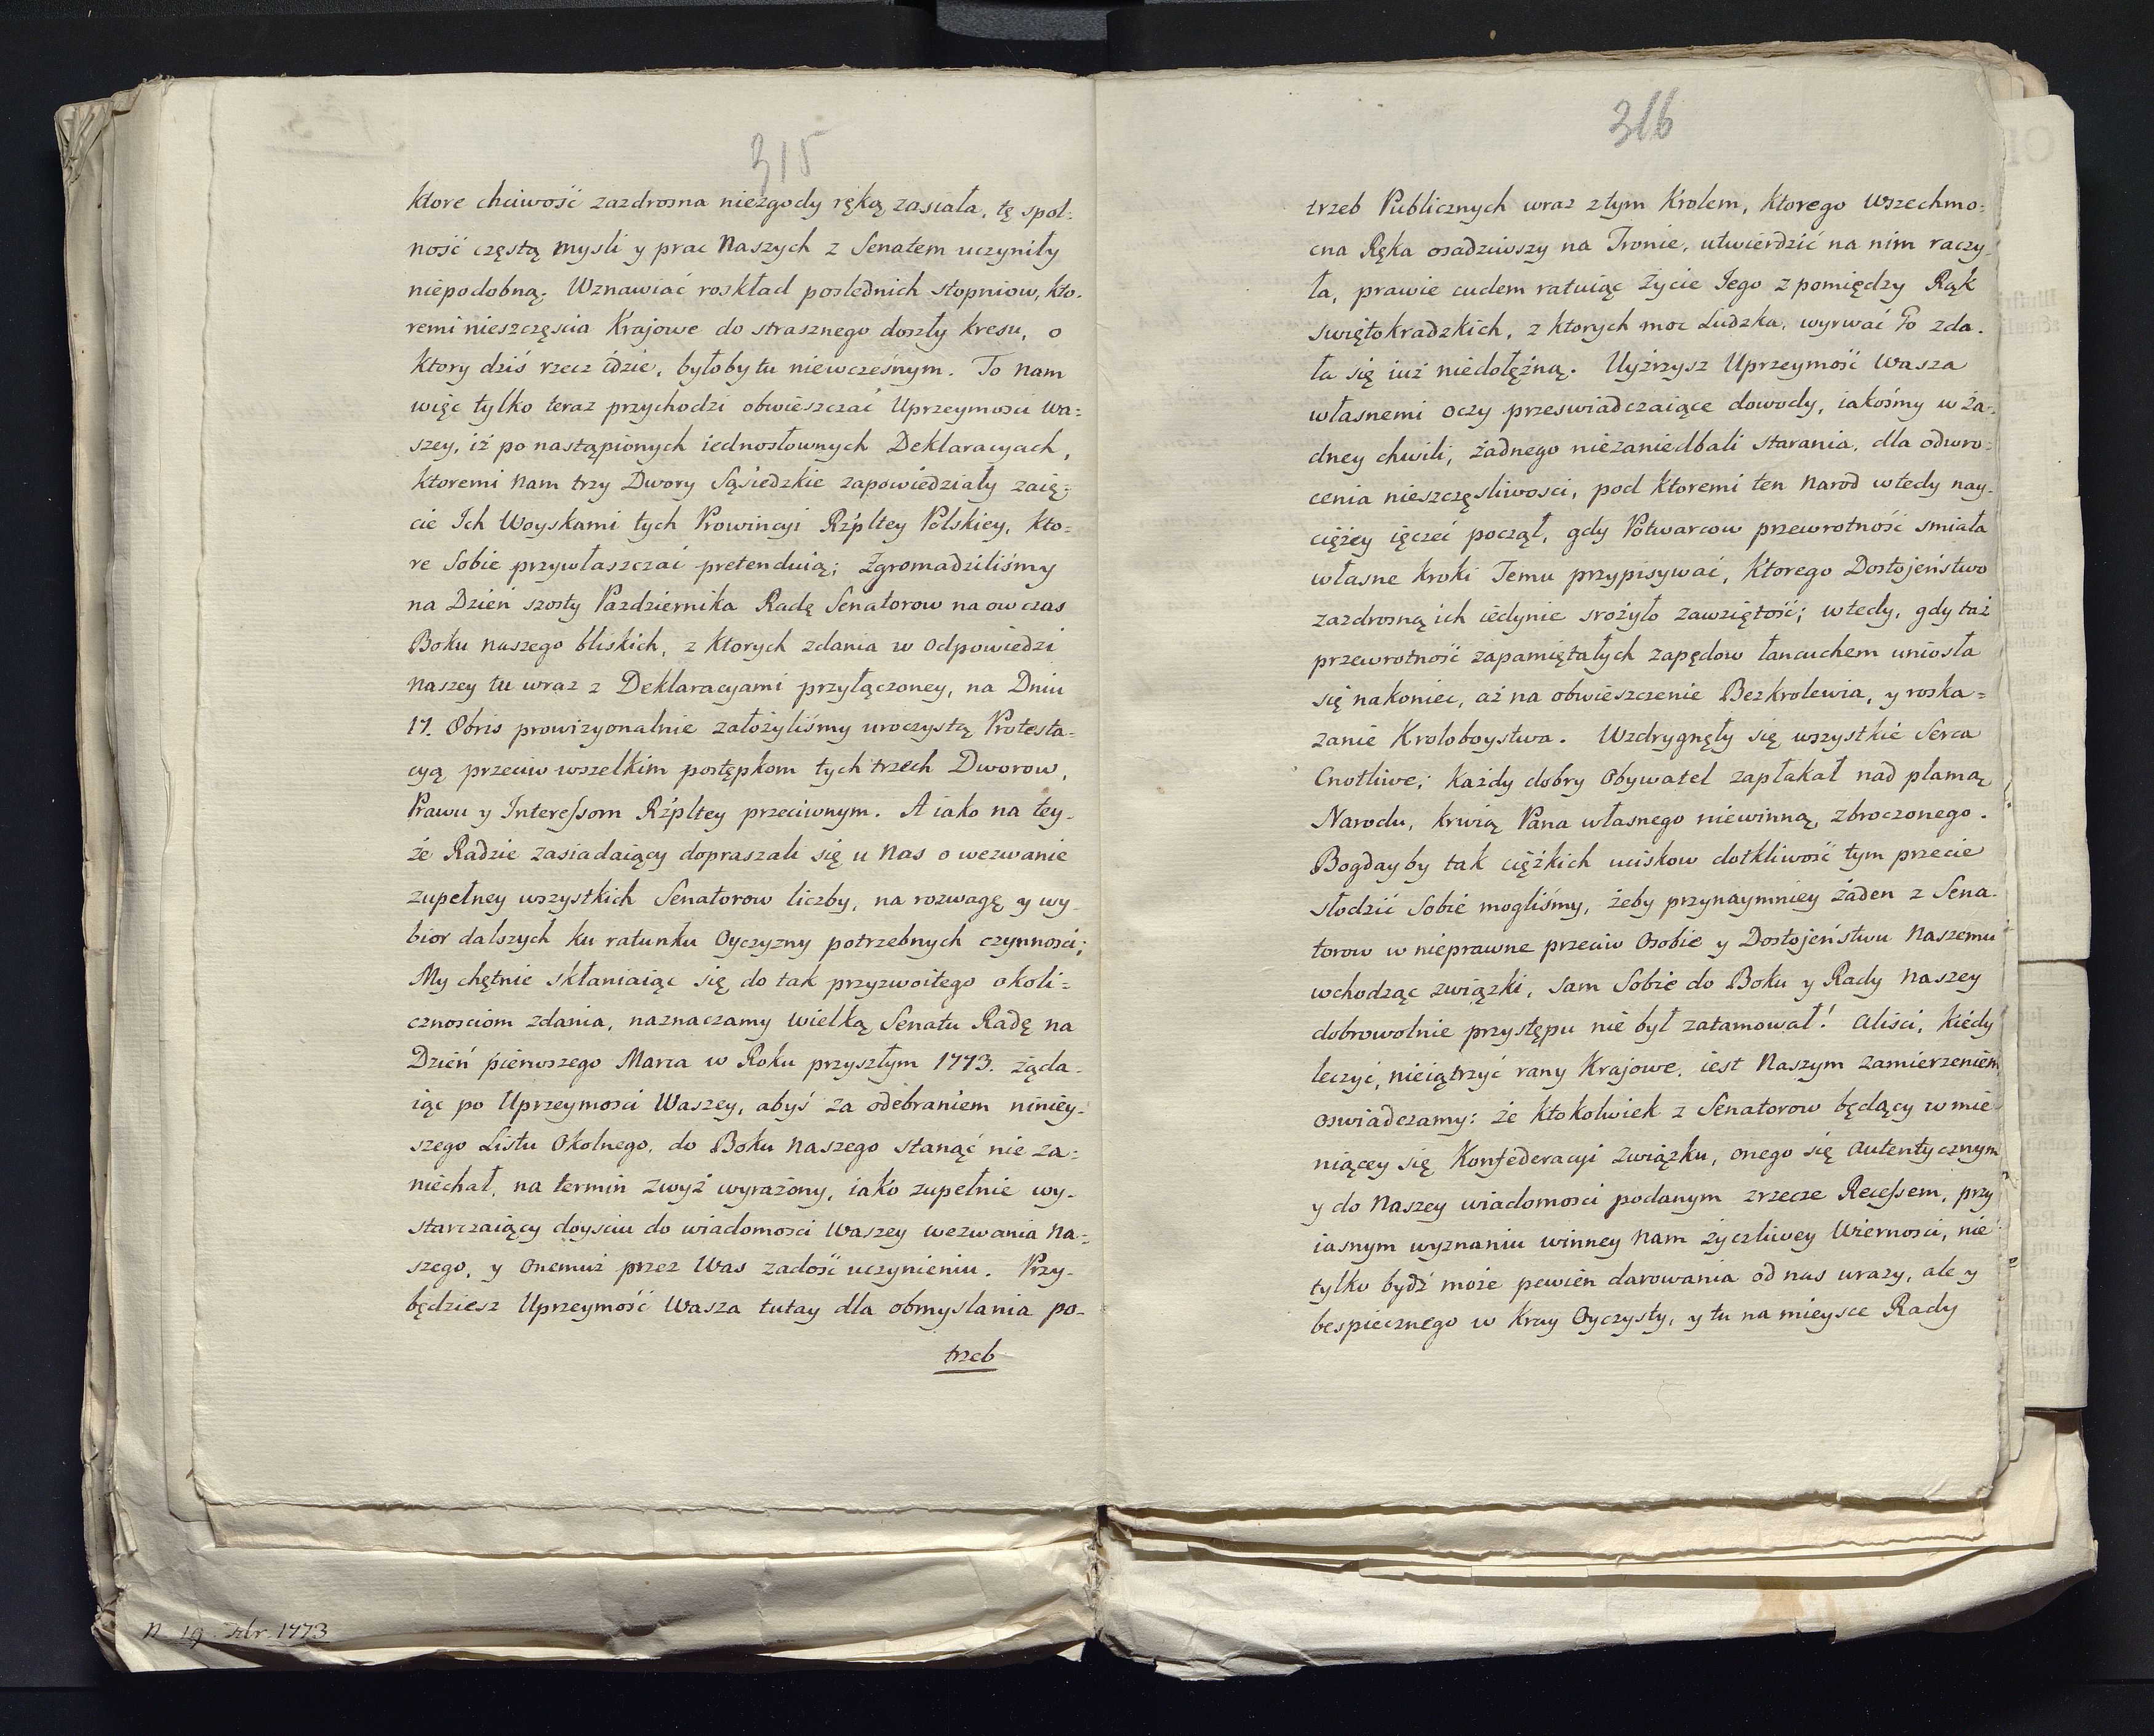 315
ktore chciwość zazdrosna niezgody ręką zasiała, tę spol=
ność częstą mysli y prac Naszych z Senatem uczyniły
niepodobną. Wznawiać roskład poslednich stopniow, kto=
remi nieszczęscia Krajowe do strasznego doszły kresu, o
ktory dziś rzecz idzie, byłoby tu niewczesnym. To Nam
więc tylko teraz przychodzi obwieszczać Uprzeymosci Wa=
szey, iż po nastąpionych iednosłownych Deklaracyach,
ktoremi Nam trzy Dwory Sąsiedzkie zapowiedziały zaię=
cie Ich Woyskami tych Prowincyi Rzpltey Polskiey, kto=
re Sobie przywłaszczać pretenduią; Zgromadziliśmy
na Dzień szosty Pazdziernika Radę Senatorow na ow czas
Boku naszego bliskich, z ktorych zdania w Odpowiedzi
Naszey tu wraz z Deklaracyami przyłączoney, na Dniu
17. Obris prowizyonalnie założyliśmy uroczystą Protesta=
cyą przeciw wszelkim postępkom tych trzech Dworow,
Prawu y Interessom Rzpltey przeciwnym. A iako na tey=
że Radzie zasiadaiący dopraszali się u Nas o wezwanie
zupełney wszystkich Senatorow liczby, na rozwagę y wy=
bior dalszych ku ratunku Oyczyzny potrzebnych czynności;
My chętnie skłaniaiąc się do tak przyzwoitego okoli=
cznosciom zdania, naznaczamy wielką Senatu Radę na
Dzień pierwszego Marca w Roku przyszłym 1773. żąda=
iąc po Uprzeymosci Waszey, abyś za odebraniem niniey=
szego Listu Okolnego, do Boku Naszego stanąć nie za=
niechał, na termin zwyż wyrażony, iako zupełnie wy=
starczaiący doysciu do wiadomosci Waszey wezwania Na=
szego, y onemuż przez Was zadość uczynieniu. Przy=
będziesz Uprzeymość Wasza tutay dla obmyslania po=
trzeb
N. 19 Xbr. 1773
316
trzeb Publicznych wraz z tym Krolem, ktorego Wszechmo=
cna Ręka osadziwszy na Tronie, utwierdzić na nim raczy=
ła, prawie cudem ratuiąc życie Jego z pomiędzy Rąk
swiętokradzkich, z ktorych moc Ludzka, wyrwać Go zda=
ła się iuż niedołężną. Uyźrzysz Uprzeymość Wasza
własnemi oczy przeswiadczaiące dowody, iakośmy w ża=
dney chwili, żadnego niezaniedbali starania, dla odwro=
cenia nieszczęsliwosci, pod ktoremi ten Narod wtedy nay=
ciężey ięczeć począł, gdy Potwarcow przewrotność smiała
własne kroki Temu przypisywać, ktorego Dostojeństwo
zazdrosną ich iedynie srożyło zawziętość; wtedy, gdy taż
przewrotność zapamiętałych zapędow łancuchem uniosła
się nakoniec, aż na obwieszczenie Bezkrolewia, y roska=
zanie Kroloboystwa. Wzdrygnęły się wszystkie Serca
Cnotliwe; każdy dobry Obywatel zapłakał nad plamą
Narodu, krwią Pana własnego niewinną zbroczonego.
Bogdayby tak ciężkich uciskow dotkliwość tym przecie
słodzić Sobie mogliśmy, żeby przynaymniey żaden z Sena=
torow w nieprawne przeciw Osobie y Dostojeństwu Naszemu
wchodząc związki, sam Sobie do Boku y Rady Naszey
dobrowolnie przystępu nie był zatamował! aliści, kiedy
leczyć, nieiątrzyć rany Krajowe, iest Naszym zamierzeniem
oswiadczamy: że ktokolwiek z Senatorow będący w mie=
niącey się Konfederacyi Związku, onego się autentycznym
y do Naszey wiadomosci podanym zrzecze Recessem, przy
iasnym wyznaniu winney Nam życzliwey Wiernosci, nie
tylko bydź może pewien darowania od nas urazy, ale y
bespiecznego w Kray Oyczysty, y tu na mieysce Rady